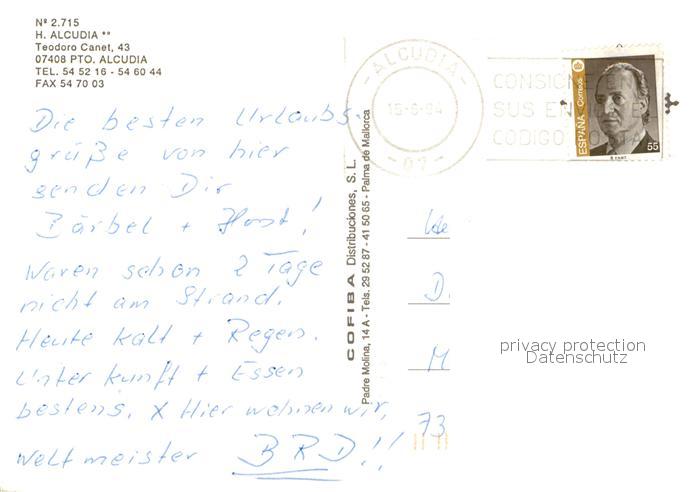 Nº 2.715
H. ALCUDIA **
Teodoro Canet, 43
07408 PTO. ALCUDIA
TEL. 54 52 16 - 54 60 44
FAX 54 70 03
Die besten Urlaubs-
grüße von hier
senden Dir
Bärbel + Horst!
Waren schon 2 Tage
nicht am Strand.
Heute kalt + Regen.
Unterkunft + Essen
bestens. X Hier wohnen wir,
Weltmeister BRD!!
COFIBA Distribuciones, S. L.
Padre Molina, 14 A - Tels. 29 52 87 - 41 50 65 - Palma de Mallorca
- ALCUDIA -
15-6-94
- 07 -
CONSIGNE EN
SUS ENVIOS EL
CODIGO POSTAL
ESPAÑA Correos
55
D.
M
73
privacy protection
Datenschutz